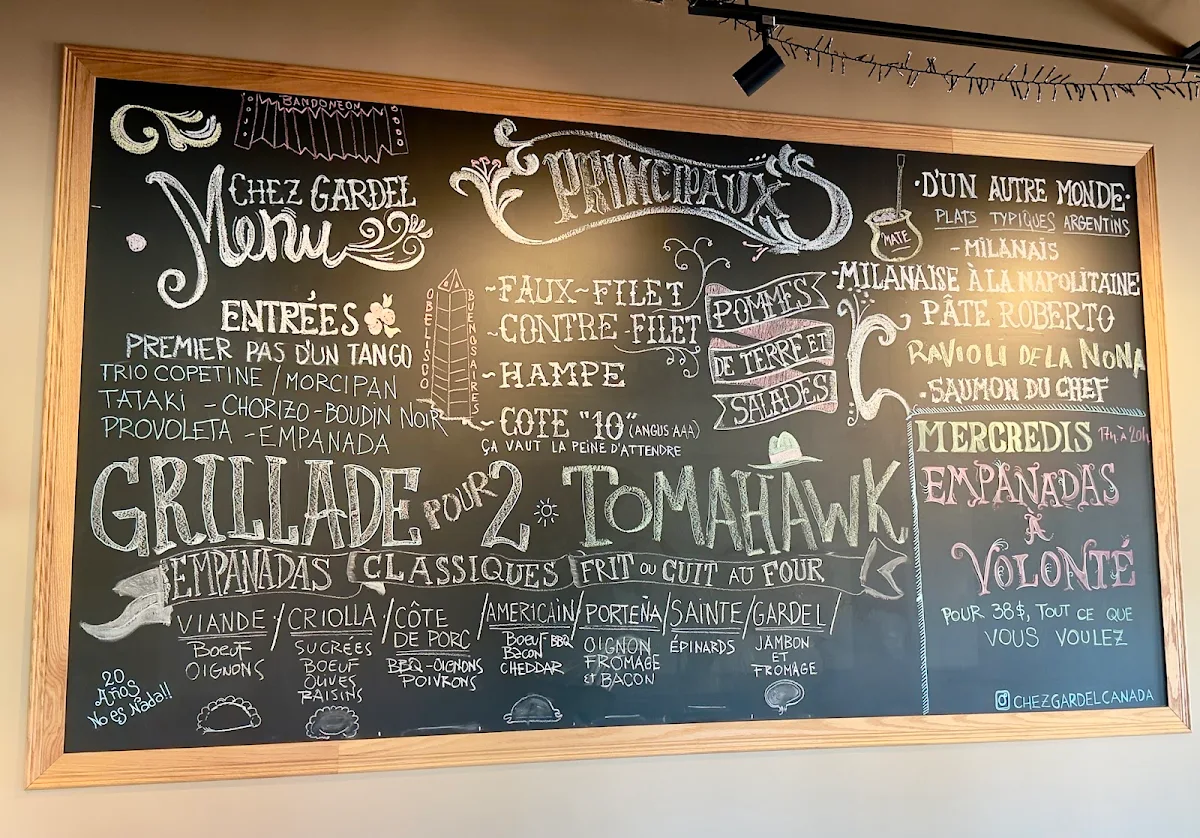 BANDONEON
CHEZ GARDEL
Menu
ENTRÉES
PREMIER PAS D'UN TANGO
TRIO COPETINE / MORCIPAN
TATAKI - CHORIZO - BOUDIN NOIR
PROVOLETA - EMPANADA
OBELISCO
BUENOS AIRES
PRINCIPAUX
~FAUX~FILET
~CONTRE-FILET
~HAMPE
~COTE "10" (ANGUS AAA)
ÇA VAUT LA PEINE D'ATTENDRE
POMMES
DE TERRE ET
SALADES
MATE
·D'UN AUTRE MONDE·
PLATS TYPIQUES ARGENTINS
-MILANAIS
-MILANAISE À LA NAPOLITAINE
PÂTE ROBERTO
RAVIOLI DE LA NONA
-SAUMON DU CHEF
GRILLADE POUR 2 TOMAHAWK
EMPANADAS CLASSIQUES FRIT OU CUIT AU FOUR
VIANDE /
BOEUF
OIGNONS
CRIOLLA /
SUCRÉES
BOEUF
OLIVES
RAISINS
CÔTE
DE PORC
BBQ-OIGNONS
POIVRONS
/AMERICAIN/
BOEUF BBQ
BACON
CHEDDAR
PORTEÑA/
OIGNON
FROMAGE
ET BACON
SAINTE/
ÉPINARDS
GARDEL/
JAMBON
ET
FROMAGE
20
AÑOS
No es Nada!!
MERCREDIS 17h à 20h
EMPANADAS
À
VOLONTÉ
POUR 38$, TOUT CE QUE
VOUS VOULEZ
CHEZGARDELCANADA